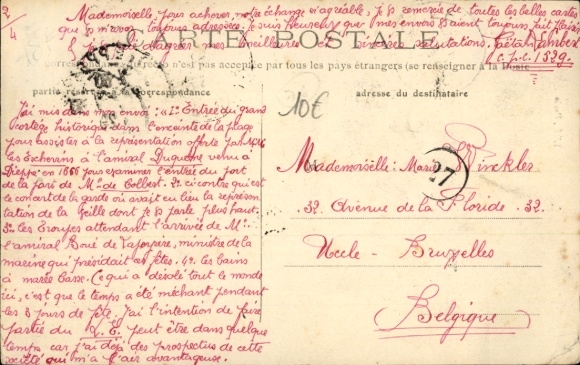 2/4
Mademoiselle, pour achever notre échange si agréable, je vous remercie de toutes les belles cartes
que vous m'avez toujours adressées, je suis heureux que mes envois vous aient toujours fait plaisir
& vous prie d'agréer mes meilleures et sincères salutations. Gaëtan
C.p.C. 1529.
CARTE POSTALE
Correspondance au recto n'est pas acceptée par tous les pays étrangers (se renseigner à la Poste
partie réservée à la correspondance
adresse du destinataire
10€
J'ai mis dans mon envoi: 1º Entrée du grand
cortège historique dans l'enceinte de la plage
pour assister à la représentation offerte par
les Echevins à l'amiral Duquesne venu à
Dieppe en 1666 pour examiner l'entrée du port
de la part de Mr de Colbert. 2º ci contre qui est
le canart de la garde où avait eu lieu la représen-
tation de la veille dont je vous parle plus haut.
3º les troupes attendant l'arrivée de Mr
l'amiral Boué de Lapeyère, ministre de la
marine qui présidait les fêtes. 4º les bains
à marée basse. Ce qui a désolé tout le monde
ici, c'est que le temps a été méchant pendant
les 3 jours de fête. J'ai l'intention de faire
partie du L. E. peut être dans quelque
temps car j'ai déjà des prospectus de cette
société qui m'a l'air avantageuse.
Mademoiselle: Marie Winckler
32. Avenue de la Floride. 32.
27
Uccle - Bruxelles
Belgique